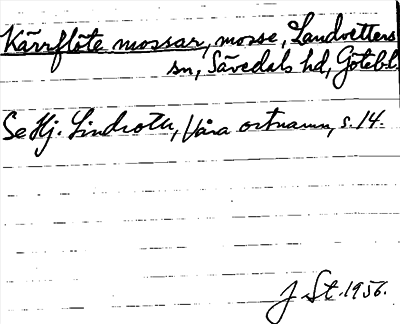 Kärrflöte mossar, mosse, Landvetters
sn, Sävedals hd, Götebl.
Se Hj. Lindroth, Våra ortnamn, s. 14.
J St. 1956.